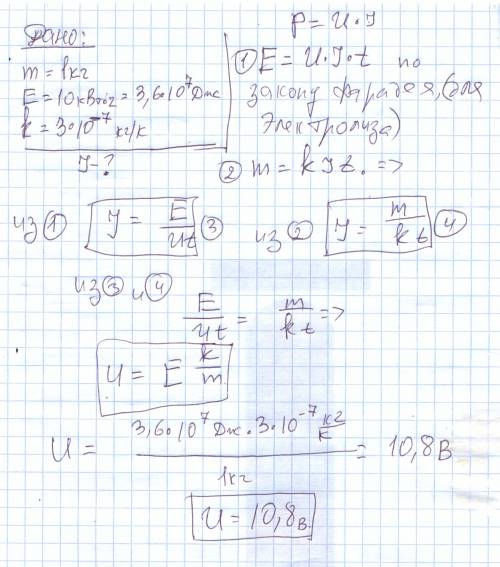 Дано:
m = 1кг
E = 10кВт∘г = 3,6∘10⁷ Дж
k = 3∘10⁻⁷ кг/к
I - ?
P = U · I
① E = U · I · t по
закону фарадея, (для
электролиза)
② m = k I t. =>
из ① I = E/Ut ③ из ② I = m/kt ④
из ③ и ④
E/Ut = m/kt =>
U = E k/m
U = 3,6∘10⁷ Дж · 3·10⁻⁷ кг/к / 1кг = 10,8 В
U = 10,8 в.